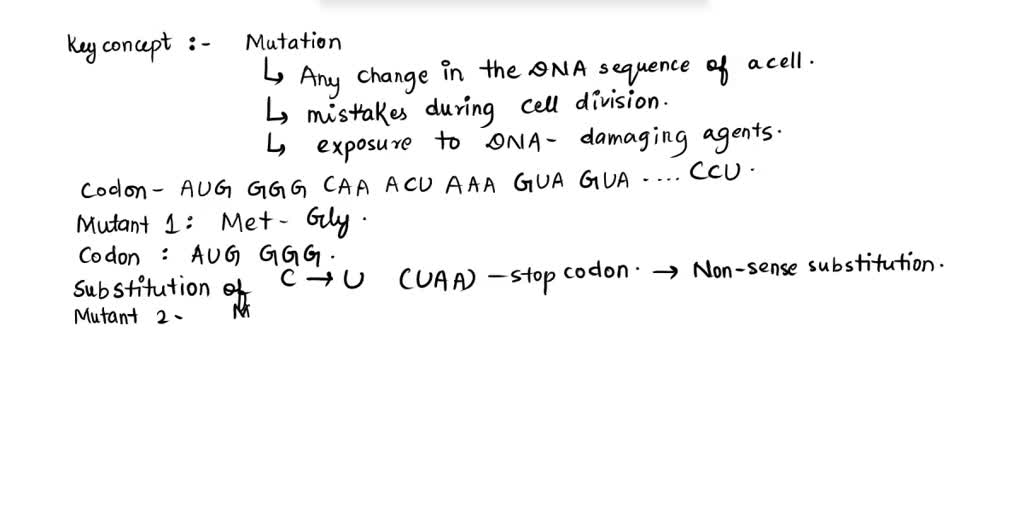 Key concept :- Mutation
↳ Any change in the DNA sequence of a cell.
↳ mistakes during cell division.
↳ exposure to DNA- damaging agents.
Codon - AUG GGG CAA ACU AAA GUA GUA ···· CCU.
Mutant 1: Met - Gly.
Codon : AUG GGG.
Substitution of C → U (UAA) - stop codon. → Non-sense substitution.
Mutant 2- M